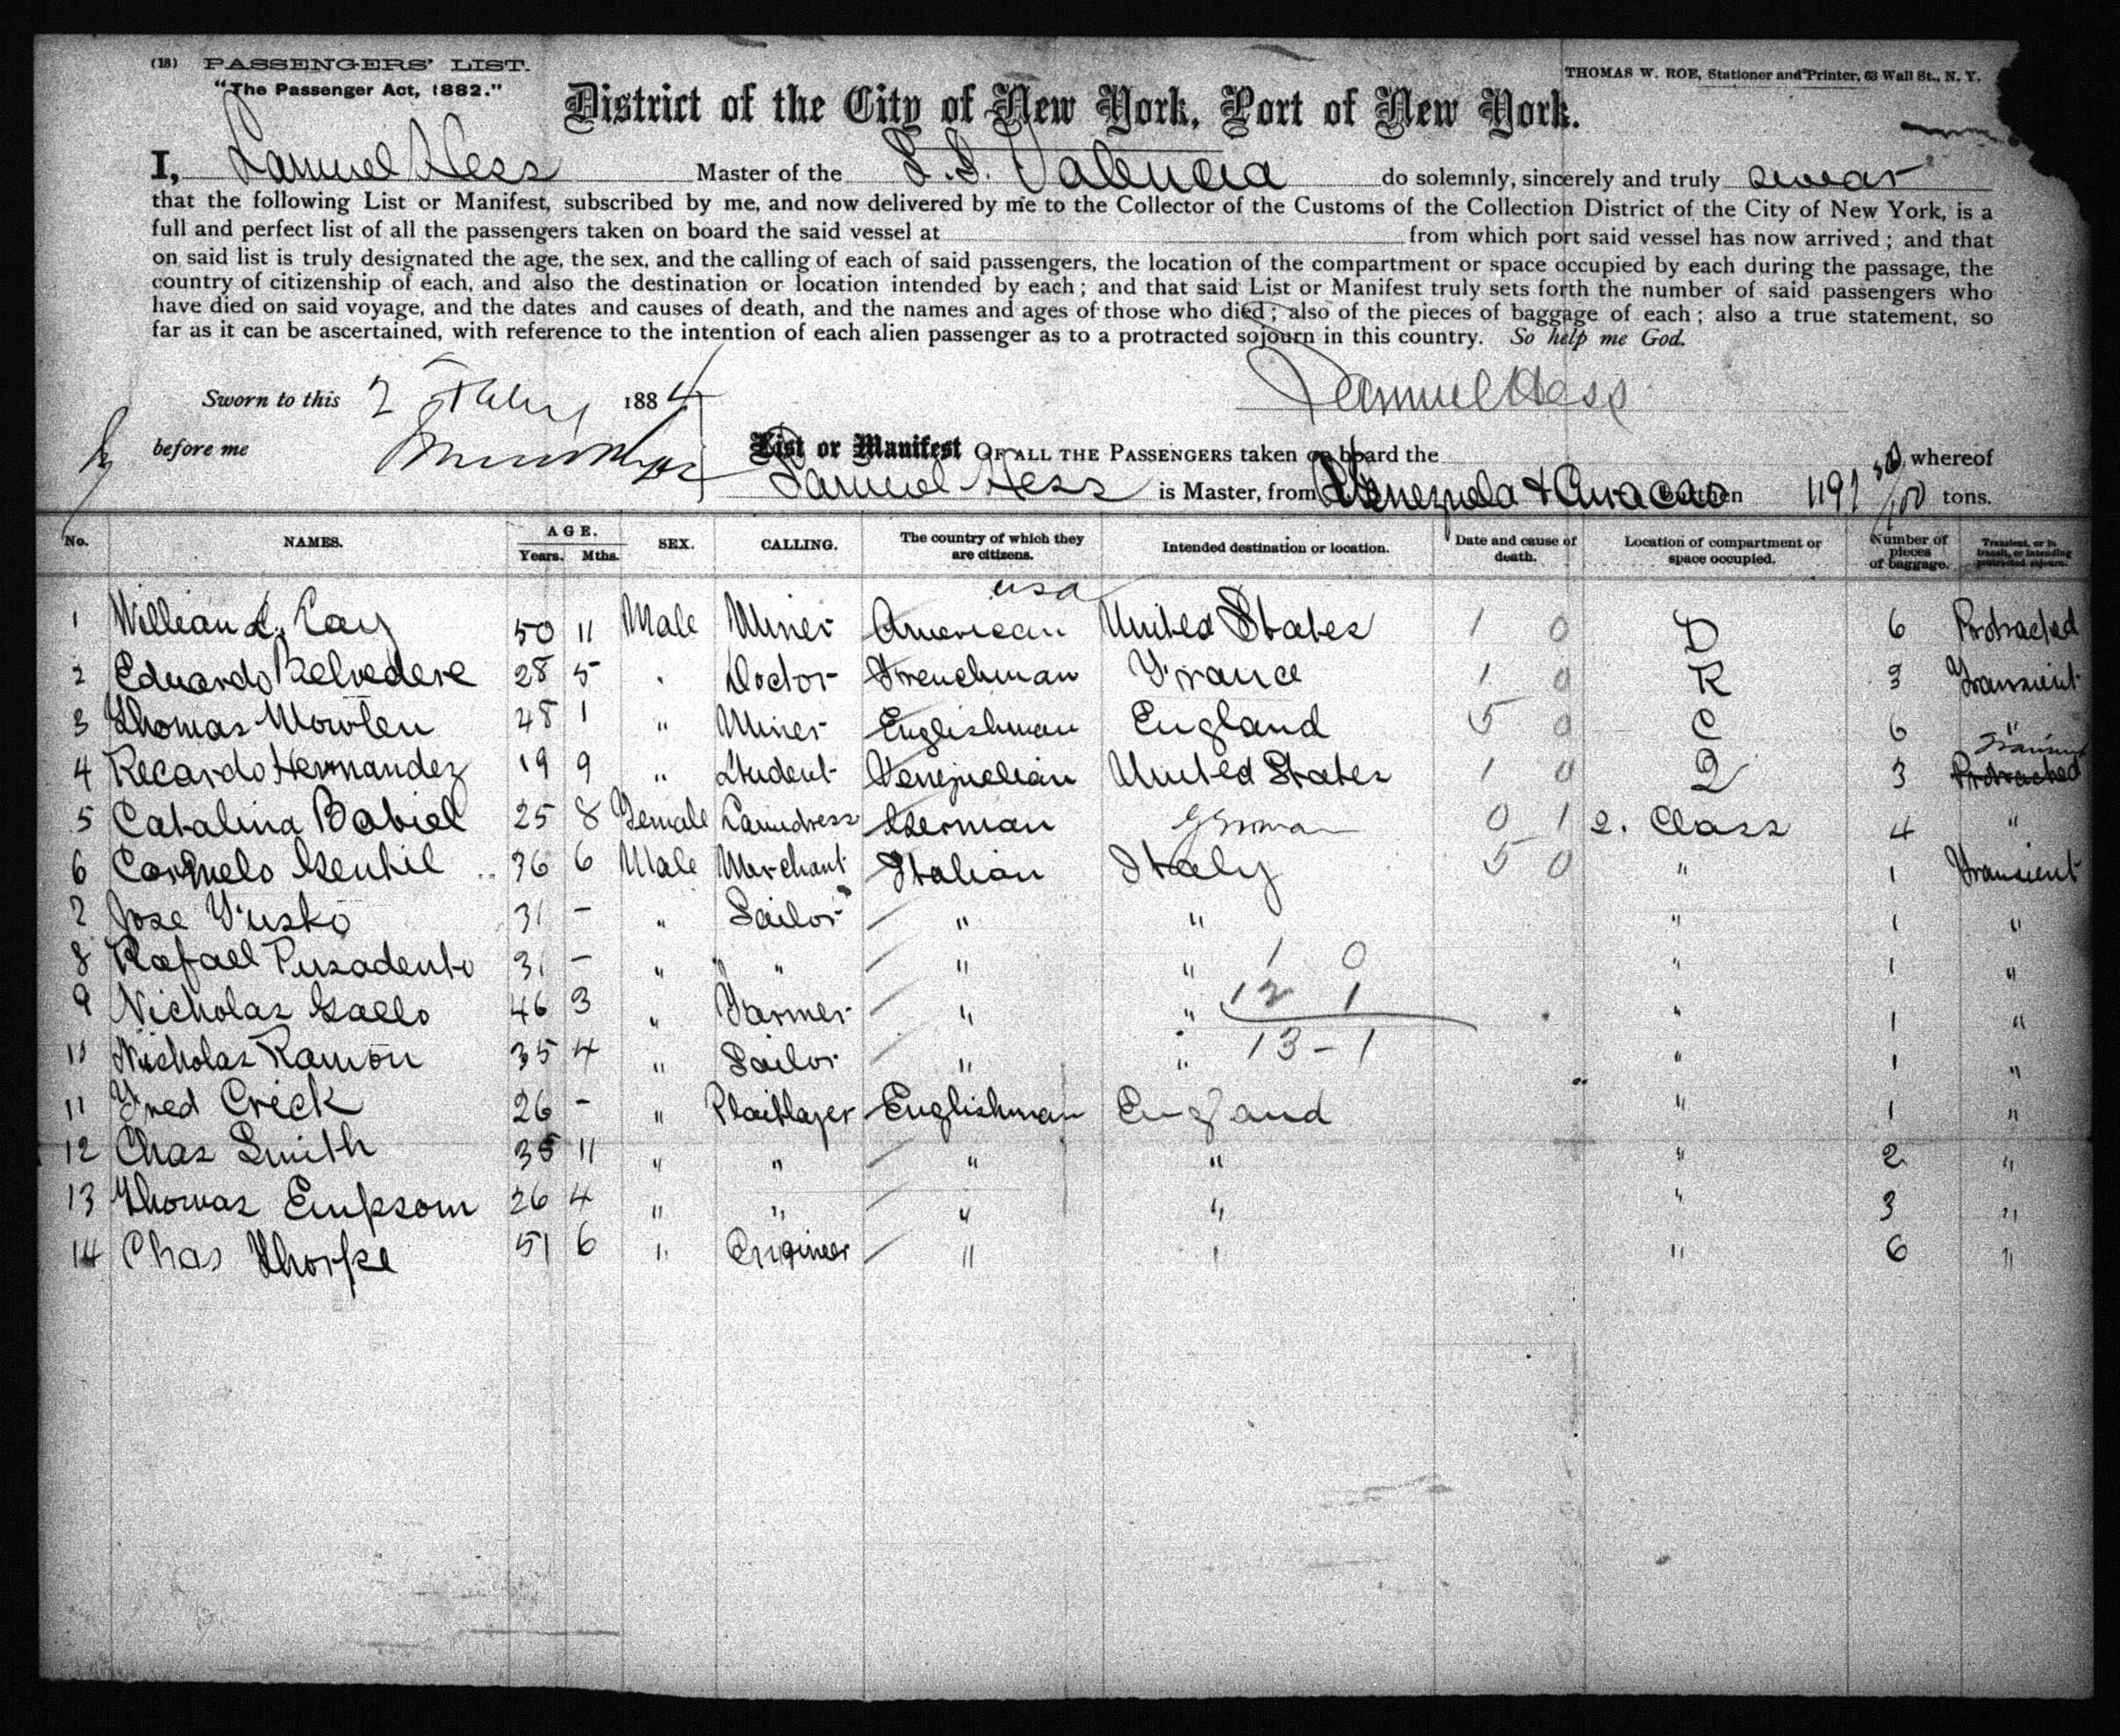 (18) PASSENGERS' LIST.
"The Passenger Act, 1882."
THOMAS W. ROE, Stationer and Printer, 63 Wall St., N. Y.
District of the City of New York, Port of New York.
I, Samuel Hess Master of the S.S. Valencia do solemnly, sincerely and truly swear
that the following List or Manifest, subscribed by me, and now delivered by me to the Collector of the Customs of the Collection District of the City of New York, is a
full and perfect list of all the passengers taken on board the said vessel at from which port said vessel has now arrived; and that
on said list is truly designated the age, the sex, and the calling of each of said passengers, the location of the compartment or space occupied by each during the passage, the
country of citizenship of each, and also the destination or location intended by each; and that said List or Manifest truly sets forth the number of said passengers who
have died on said voyage, and the dates and causes of death, and the names and ages of those who died; also of the pieces of baggage of each; also a true statement, so
far as it can be ascertained, with reference to the intention of each alien passenger as to a protracted sojourn in this country. So help me God.
Sworn to this 2 1884
Samuel Hess
before me
List or Manifest OF ALL THE PASSENGERS taken on board the whereof
Samuel Hess is Master, from Venezuela & Curacao burthen 1191 50/100 tons.
No. NAMES. AGE. Years. Mths. SEX. CALLING. The country of which they are citizens. Intended destination or location. Date and cause of death. Location of compartment or space occupied. Number of pieces of baggage. Transient, or in transit, or intending protracted sojourn.
usa
1 William L. Cay 50 11 Male Miner American United States 1 0 D 6 Protracted
2 Eduardo Belvedere 28 5 " Doctor Frenchman France 1 0 R 3 Transient
3 Thomas Mowlen 48 1 " Miner Englishman England 5 0 C 6 "
Transient
4 Recardo Hernandez 19 9 " Student Venezuelian United States 1 0 Q 3 Protracted
5 Catalina Babiel 25 8 Female Laundress German German 0 1 2. Class 4 "
6 Carmelo Gentil 36 6 Male Merchant Italian Italy 5 0 " 1 Transient
7 Jose Fusko 31 - " Sailor " " " 1 "
8 Rafael Pusadento 31 - " " " " 1 0 " 1 "
9 Nicholas Gallo 46 3 " Farmer " " 12 1 " 1 "
10 Nicholas Ramon 35 4 " Sailor " " 13 - 1 " 1 "
11 Fred Crick 26 - " Platelayer Englishman England " 1 "
12 Chas Smith 35 11 " " " " " 2 "
13 Thomas Empsom 26 4 " " " " " 3 "
14 Chas Thorpe 51 6 " Engineer " " " 6 "